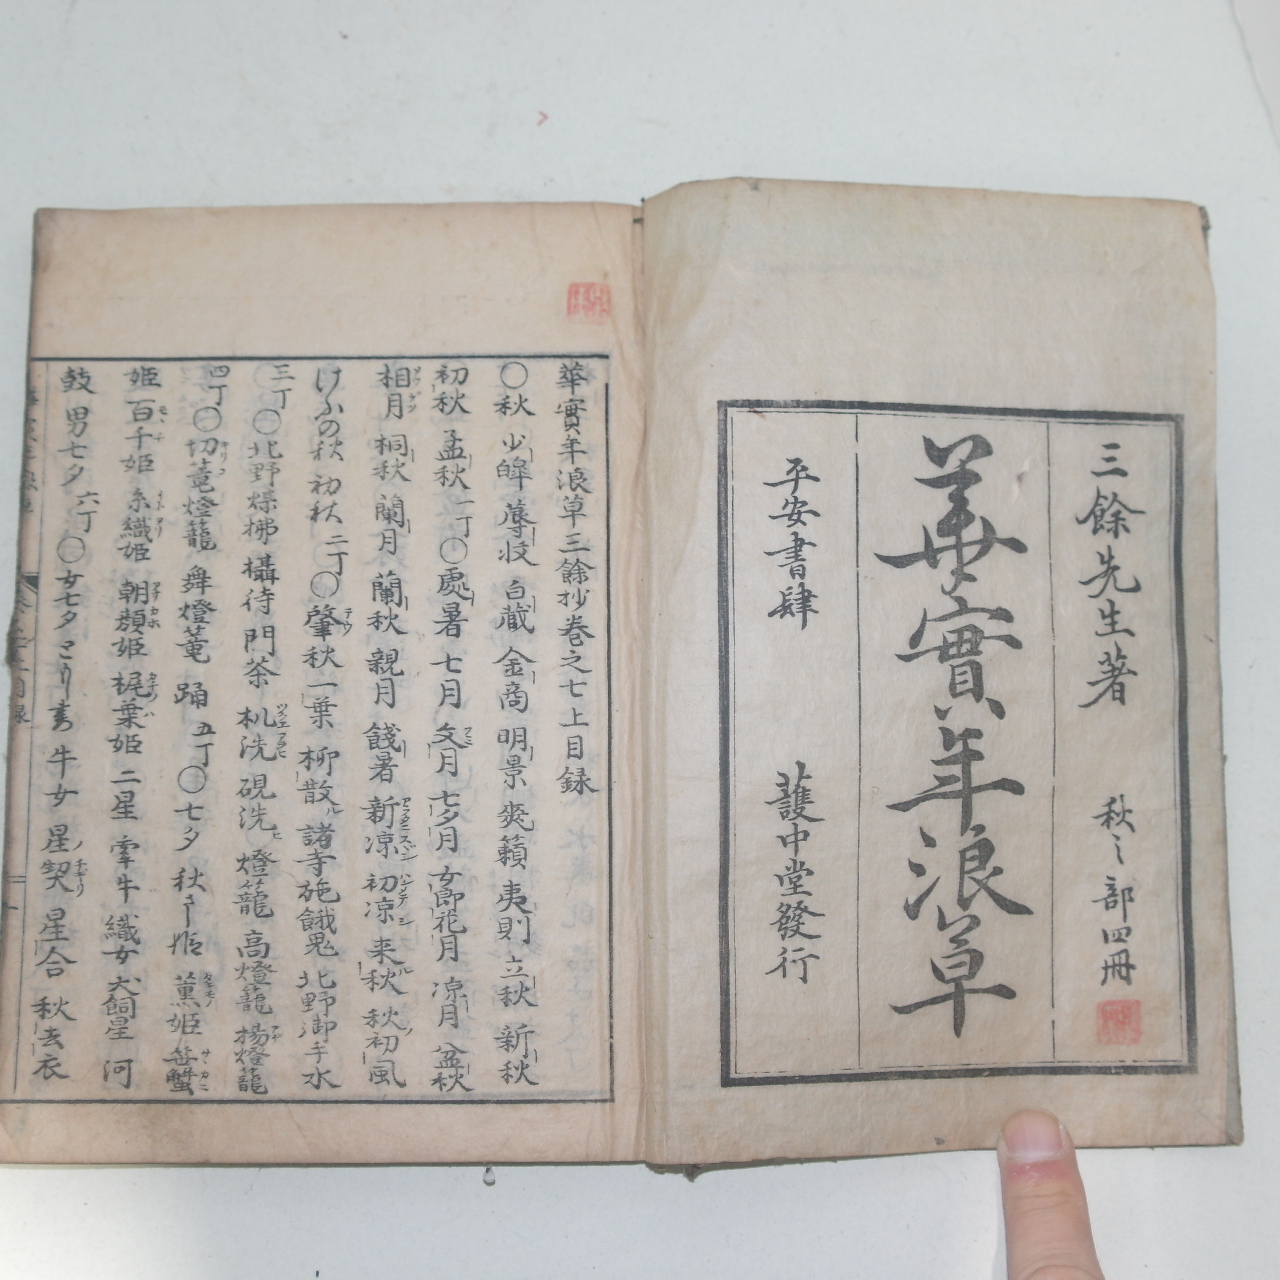 三餘先生著 秋之部四冊
華實年浪草
平安書肆 護中堂發行
華實年浪草三餘抄巻之七上目録
〇秋 少皡 蓐収 白蔵 金商 明景 爽籟 夷則 立秋 新秋
初秋 孟秋 一丁〇處暑 七月 文月 七夕月 女郎花月 凉月 盆秋
相月 桐秋 蘭月 蘭秋 親月 餞暑 新凉 初凉 来秋 秋初風
けふの秋 初秋 二丁〇肇秋 一葉 柳散ル 諸寺施餓鬼 北野御手水
三丁〇北野煤拂 攝待 門茶 机洗 硯洗ヒ 燈籠 高燈籠 楊燈籠
四丁〇切篭燈籠 舞燈篭 踊 五丁〇七夕 秋さ姫 薫姫 笹蟹
姫 百千姫 糸織姫 朝顔姫 梶葉姫 二星 牽牛 織女 犬飼星 河
鼓 男七夕 六丁〇女七夕 牛女 星ノ契 星合 秋去衣